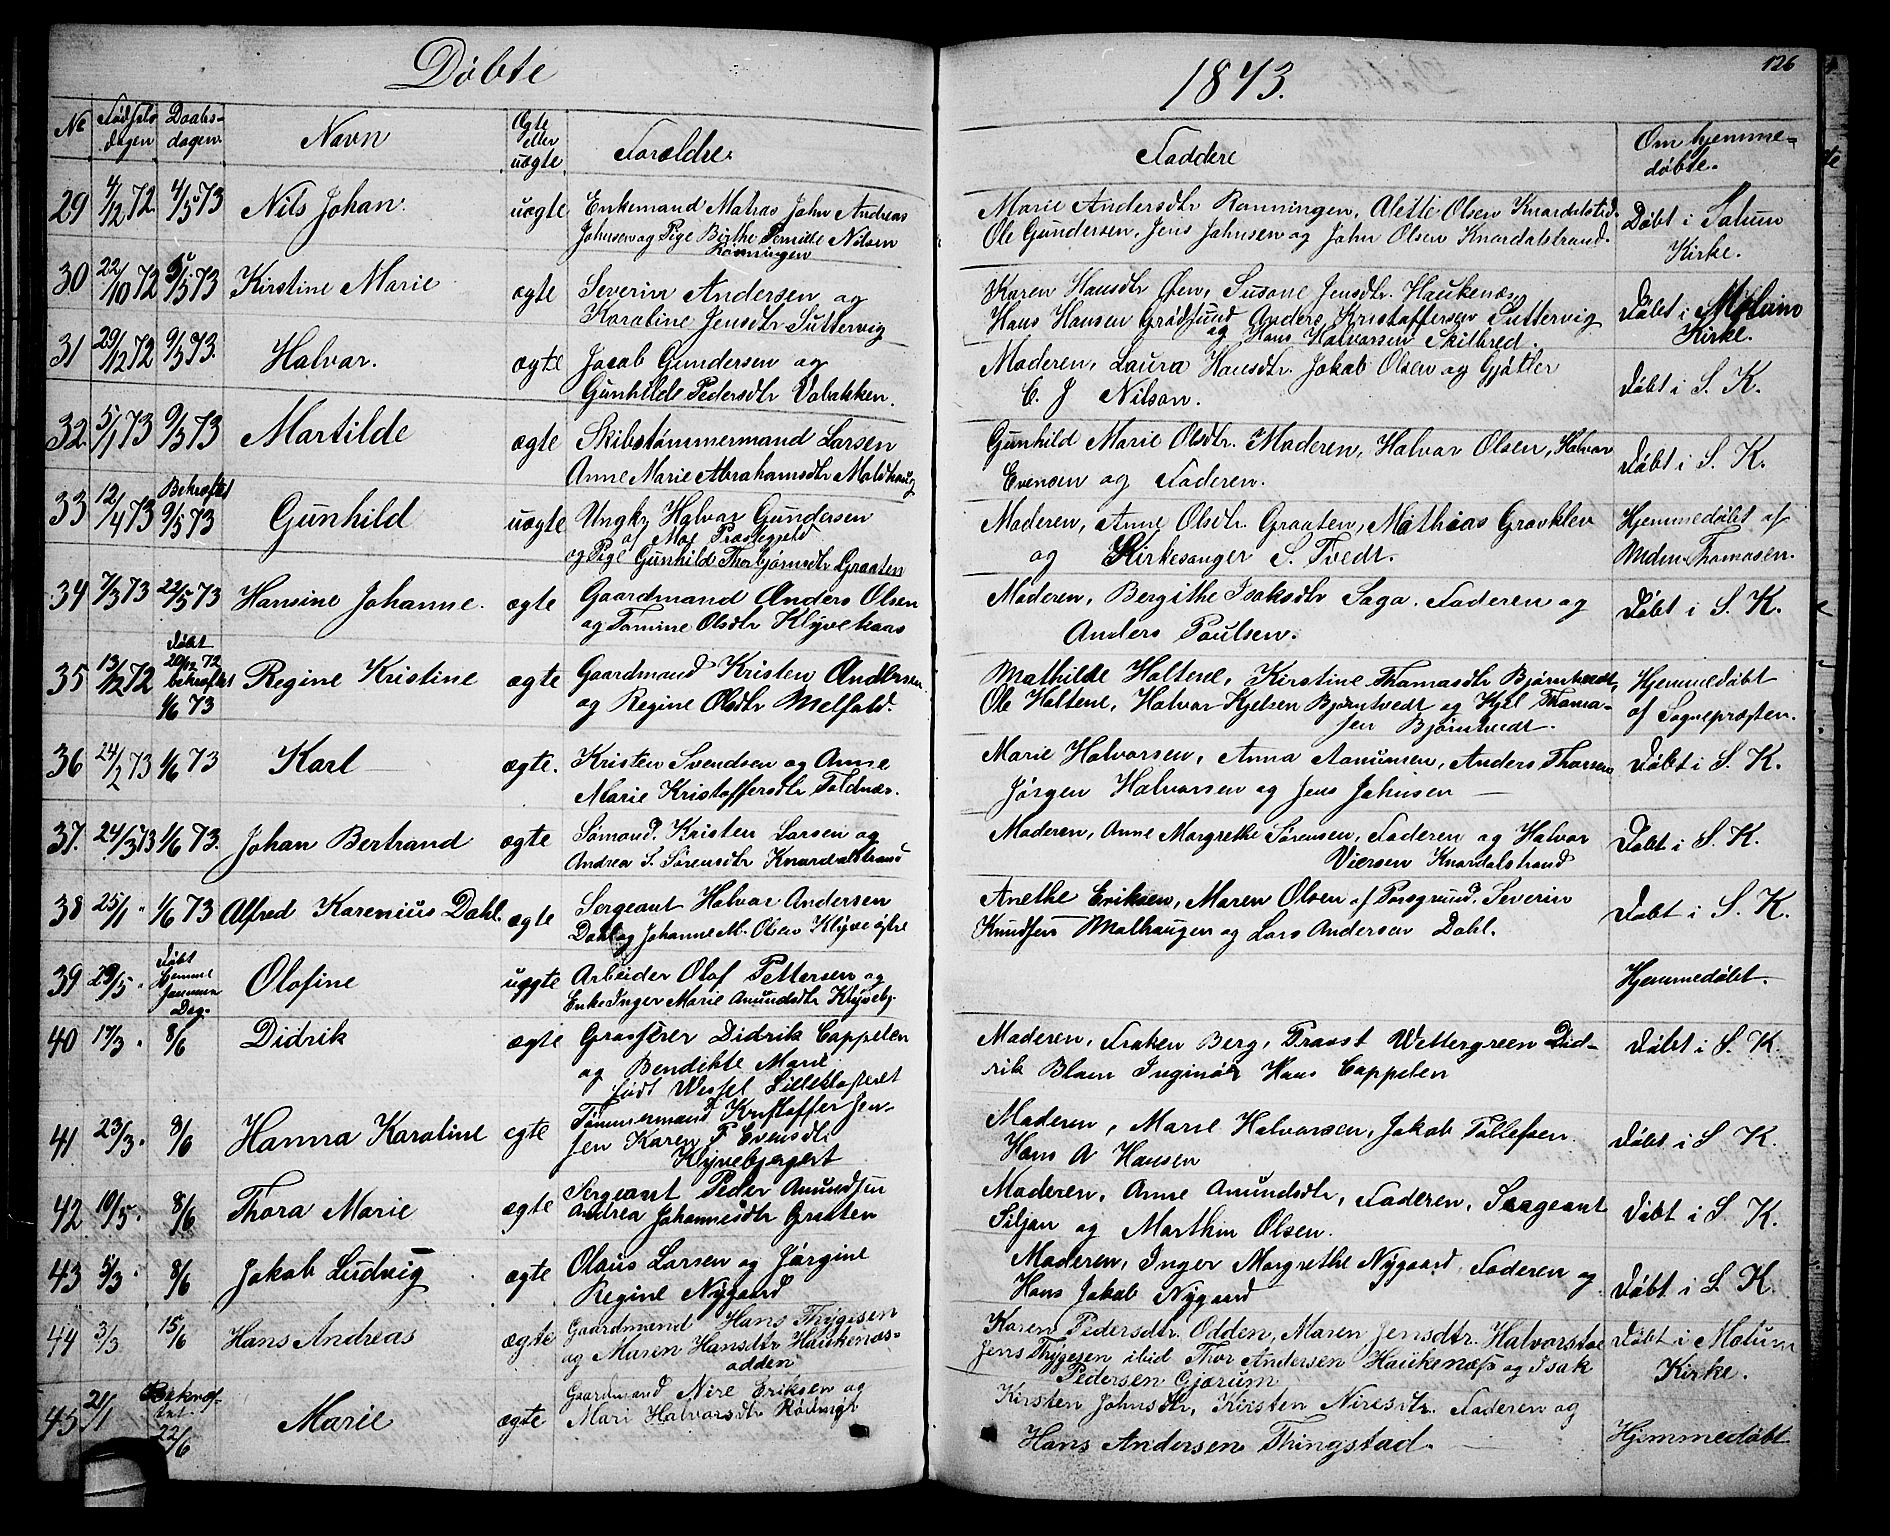 Døbte
1873.
126
No
Fødsels dagen
Daabs-dagen
Navn
Ægte eller uægte.
Forældre.
Faddere
Om hjemme-døbte.
29 4/12 72. 4/5 73 Nils Johan. uægte Enkemand Matros John Andreas
Johnsen og Pige Birthe Pernille Nilsen
Rønningen
Marie Andersdtr Rønningen, Alette Olsen Knardalstrd.
Ole Gundersen, Jens Johnsen og John Olsen Knardalstrand.
Døbt i Solum
Kirke.
30 22/10 72 5/5 73 Kirstine Marie ægte Severin Andersen og
Karoline Jensdtr Suttervig
Karen Hansdtr Øen, Susane Jensdtr. Haukenæs
Hans Hansen Grødsund Anders Kristoffersen Suttervig
og Hans Halvorsen Skilbred.
Døbt i Melum
Kirke.
31 29/12 72 9/3 73. Halvor. ægte Jacob Gundersen og
Gunhilde Pedersdtr Vabakken.
Moderen, Laura Hansdtr. Jakob Olsen og Gjøtler
C. J Nilson.
Døbt i S. K.
32. 5/1 73 9/3 73 Martilde ægte Skibstømmermand Larsen
Anne Marie Abrahamsdtr Moldhaug
Gunhild Marie Olsdtr. Moderen, Halvor Olsen, Halvor
Evensen og Faderen.
Døbt i S. K.
33 12/4 73 Bekræftet 9/5 73 Gunhild uægte Ungk. Halvor Gundersen
og Pige Gunhild Thorbjørnsdtr Graaten
Moderen, Anne Olsdtr Graaten, Mathias Gravklev
og Kirkesanger S. Tvedt.
Hjemmedøbt af
Thomasen.
34 7/3 73 22/5 73 Hansine Johanne. ægte Gaardmand Anders Olsen
og Tomine Olsdtr Klyvekaas
Moderen, Bergithe Isaksdtr Saga. Faderen og
Anders Poulsen.
Døbt i S. K.
35 13/12 72 Døbt 20/12 72 bekræftet 1/6 73 Regine Kristine ægte Gaardmand Kristen Andersen
og Regine Olsdtr Melfald.
Mathilde Holtene, Kirstine Thomasdtr Bjørntvedt,
Ole Holtene, Halvor Kjelsen Bjørntvedt og Kjel Thoma-
sen Bjørntvedt.
Hjemmedøbt
af Sognepræsten.
36 24/2 73 1/6 73 Karl ægte. Kristen Svendsen og Anne
Marie Kristoffersdtr Toldnæs.
Marie Halvorsen, Anna Amunsen, Anders Thorsen
Jørgen Halvorsen og Jens Johnsen
Døbt i S. K.
37. 24/3 73 1/6 73. Johan Bertrand ægte Sømand. Kristen Larsen og
Andrea S. Sørensdtr Knardalstrand
Moderen, Anne Margrethe Sørensen, Faderen og Halvor
Viersen Knardalstrand
Døbt i S. K.
38 25/1 " 1/6 73 Alfred Karenius Dahl. ægte Sergeant Halvor Andersen
Dahl og Johanne M. Olsen Klyve østre
Anethe Eriksen, Maren Olsen af Porsgrund. Severin
Knudsen Malhaugen og Lars Andersen Dahl.
Døbt i S. K.
39 29/5 " Døbt Hjemme samme Dag. Olofine uægte Arbeider Olof Pettersen og
Enke Inger Marie Amundsdtr Klyvebj.
Hjemmedøbt.
40 17/3 " 8/6 Didrik ægte Grosserer Didrik Cappelen
og Bendikte Marie
født Wessel Lilleklosteret
Moderen, Frøken Berg, Provst Wettergreen Did-
rik Blom Inginiør Hans Cappelen
Døbt i S. K.
41 23/3 " 8/6 Hanna Karoline ægte Tømmermand Kristoffer Jen-
sen Karen P Evensdtr
Klyvebjerget
Moderen, Marie Halvorsen, Jakob Tollefsen
Hans A Hansen
Døbt i S. K.
42 10/5 " 8/6 Thora Marie ægte Sergeant Peder Amundsen
Andrea Johannesdtr Graaten
Moderen, Anne Amundsdtr, Faderen, Seargeant
Siljan og Marthin Olsen.
Døbt i S K.
43 5/3 " 8/6 Jakob Ludvig ægte Olaus Larsen og Jørgine
Regine Nygaard
Moderen, Inger Margrethe Nygaard Faderen og
Hans Jakob Nygaard
Døbt i S. K
44 3/3 15/6 Hans Andreas ægte Gaardmand Hans Thygesen
og Maren Hansdtr Haukenæs-
odden
Karen Pedersdtr. Odden, Maren Jensdtr. Halvorstoe
Jens Thygesen ibid Thor Andersen Haukenæs og Isak
Pedersen Gjærum
Døbt i Molum
Kirke.
45 21/1 Bekræf-tet 22/6 Marie ægte Gaardmand Nire Eriksen og
Mari Halvorsdtr Rødmyr
Kirsten Johnsdtr, Kirsten Niresdtr. Faderen og
Hans Andersen Thingstad.
Hjemmedøbt